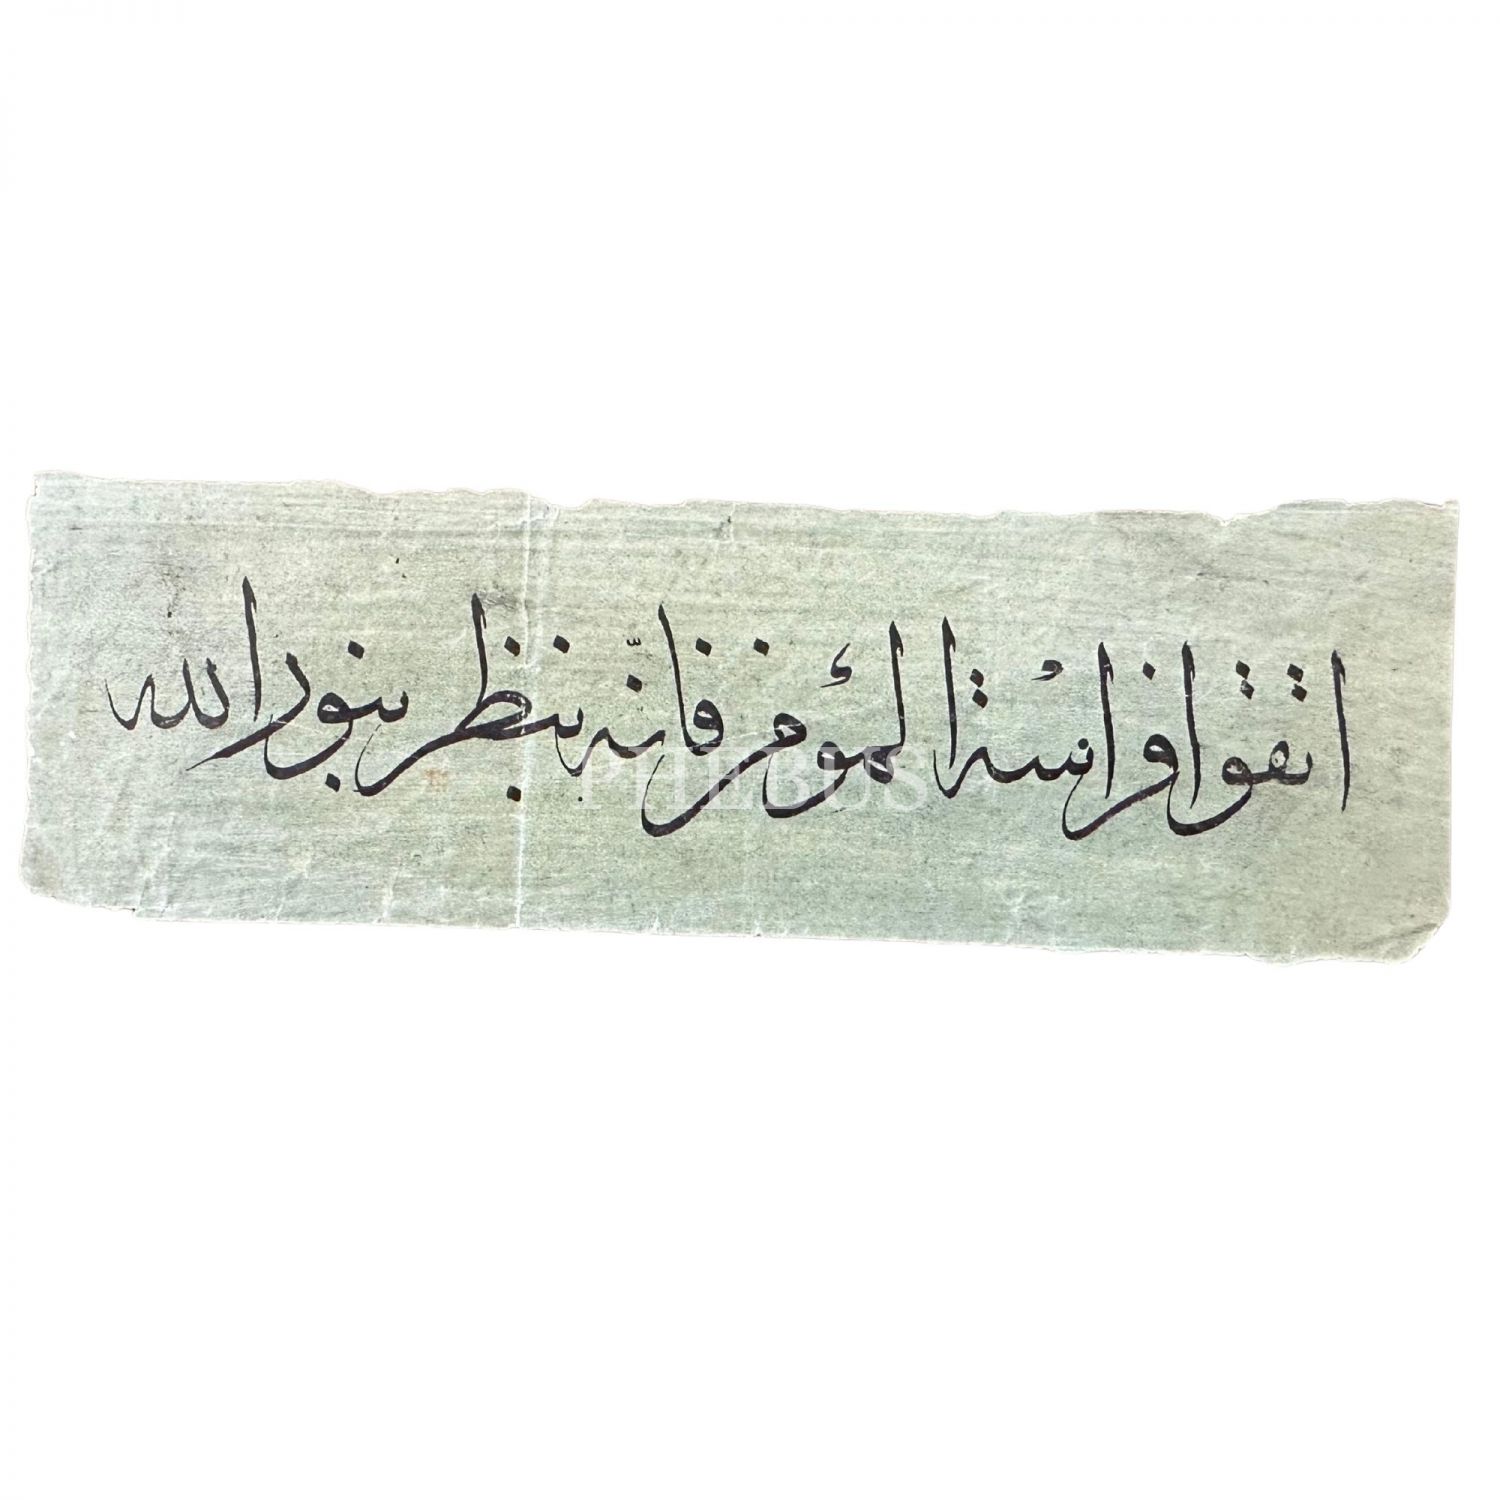 اتقوا فراسة المؤمن فانّه ينظر بنور الله
PHEBUS